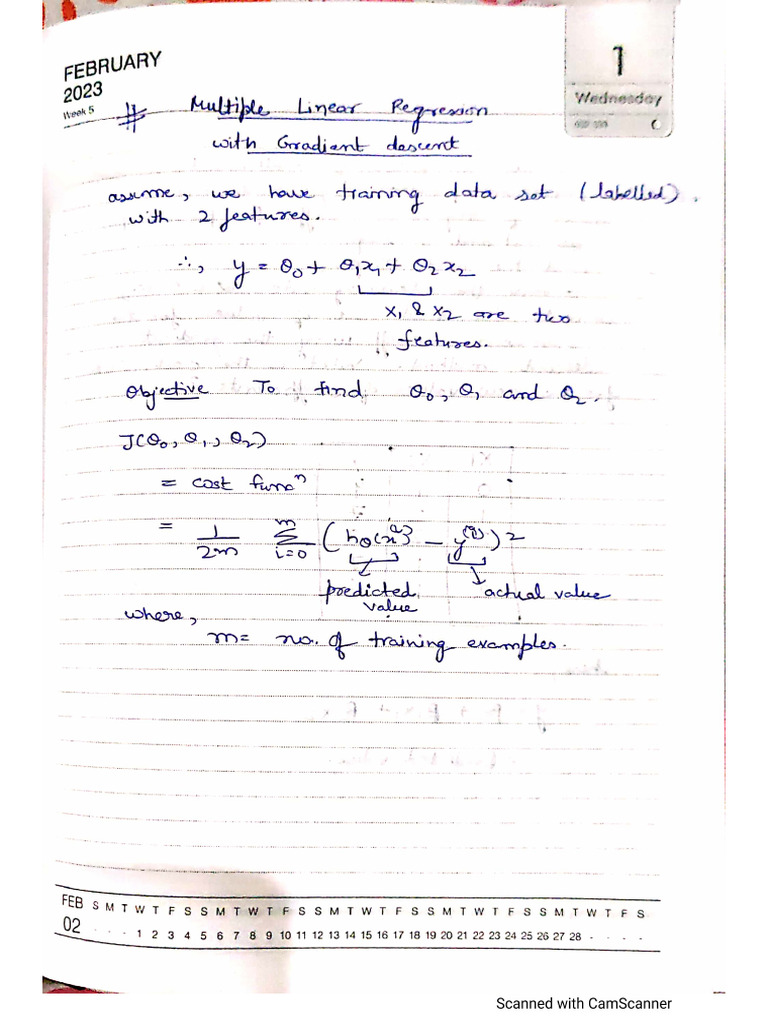 FEBRUARY
2023
Week 5
1
Wednesday
# Multiple Linear Regression
with Gradient descent
assume, we have training data set (labelled).
with 2 features.
∴, y = θ₀ + θ₁x₁ + θ₂x₂
x₁ & x₂ are two
features.
Objective To find θ₀, θ₁ and θ₂.
J(θ₀, θ₁, θ₂)
= cost funcⁿ
= 1/2m Σ_{i=0}^{m} (h_θ(x^{(i)}) - y^{(i)})²
predicted value
actual value
where,
m = no. of training examples.
FEB S M T W T F S S M T W T F S S M T W T F S S M T W T F S S M T W T F S
02 - - - 1 2 3 4 5 6 7 8 9 10 11 12 13 14 15 16 17 18 19 20 21 22 23 24 25 26 27 28 - - - -
Scanned with CamScanner